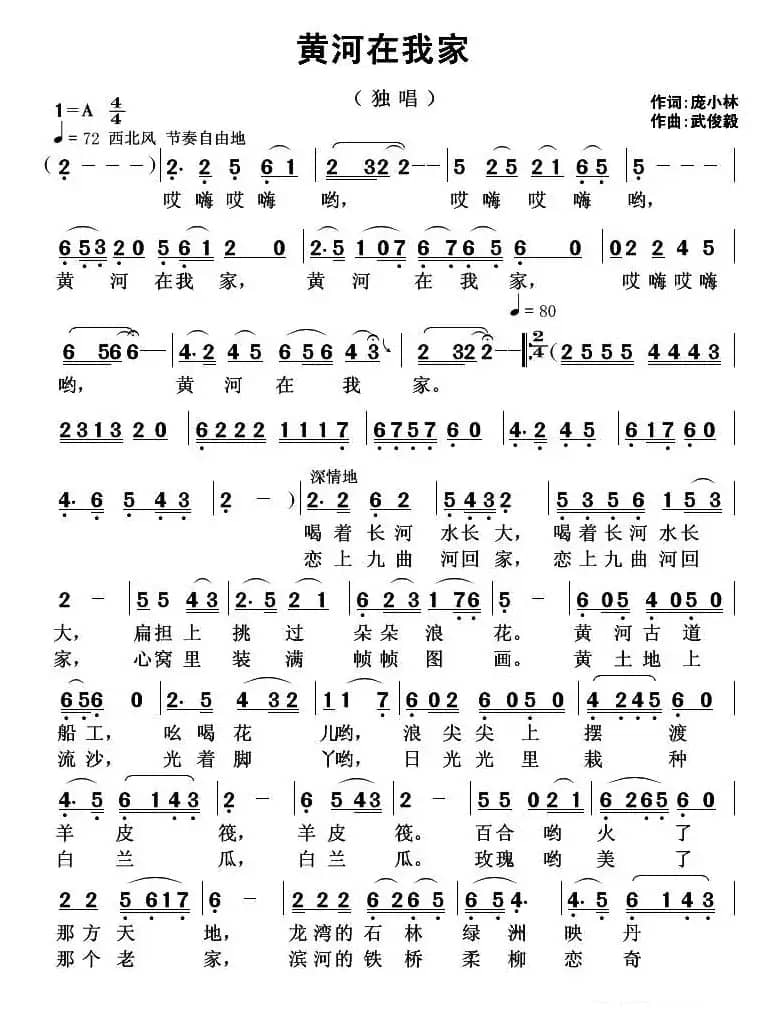 黄河在我家
（独唱）
1=A 4/4
作词:庞小林
作曲:武俊毅
♩=72 西北风 节奏自由地
(2 - - - | 2· 2 5 6 1 | 2 32 2 2 - - | 5 25 21 6 5 | 5 - - - |
哎嗨哎嗨 哟， 哎嗨哎嗨哟，
6 5 3 2 0 5 6 1 2 0 | 2· 5 1 07 6 7 6 5 6 0 | 02 2 4 5 |
黄河在我家， 黄河在我家， 哎嗨哎嗨
♩=80
6 56 6 6 - - | 4· 2 4 5 6 5 6 4 3 | 2 32 2 2 - - :| 2/4 (2 5 5 5 4 4 4 3 |
哟， 黄河在我家。
2 3 1 3 2 0 | 6 2 2 2 1 1 1 7 | 6 7 5 7 6 0 | 4· 2 4 5 | 6 1 7 6 0 |
深情地
4· 6 5 4 3 | 2 - ) | 2· 2 6 2 | 5 4 3 2 | 5 3 5 6 1 5 3 |
喝着长河水长大，喝着长河水长
恋上九曲河回家，恋上九曲河回
2 - | 5 5 4 3 | 2· 5 2 1 | 6 2 3 1 7 6 | 5 - | 6 0 5 4 0 5 0 |
大， 扁担上挑过朵朵浪花。黄河古道
家， 心窝里装满帧帧图画。黄土地上
6 5 6 0 | 2· 5 4 3 2 | 1 1 7 | 6 0 2 6 0 5 0 | 4 2 4 5 6 0 |
船工，吆喝花儿哟，浪尖尖上摆渡
流沙，光着脚丫哟，日光光里栽种
4· 5 6 1 4 3 | 2 - | 6 5 4 3 | 2 - | 5 5 0 2 1 | 6 2 6 5 6 0 |
羊皮筏，羊皮筏。百合哟火了
白兰瓜，白兰瓜。玫瑰哟美了
2 2 5 6 1 7 | 6 - | 2 2 2 6 2 6 5 | 6 5 4· | 4 5 6 1 4 3 |
那方天地，龙湾的石林绿洲映丹
那个老家，滨河的铁桥柔柳恋奇